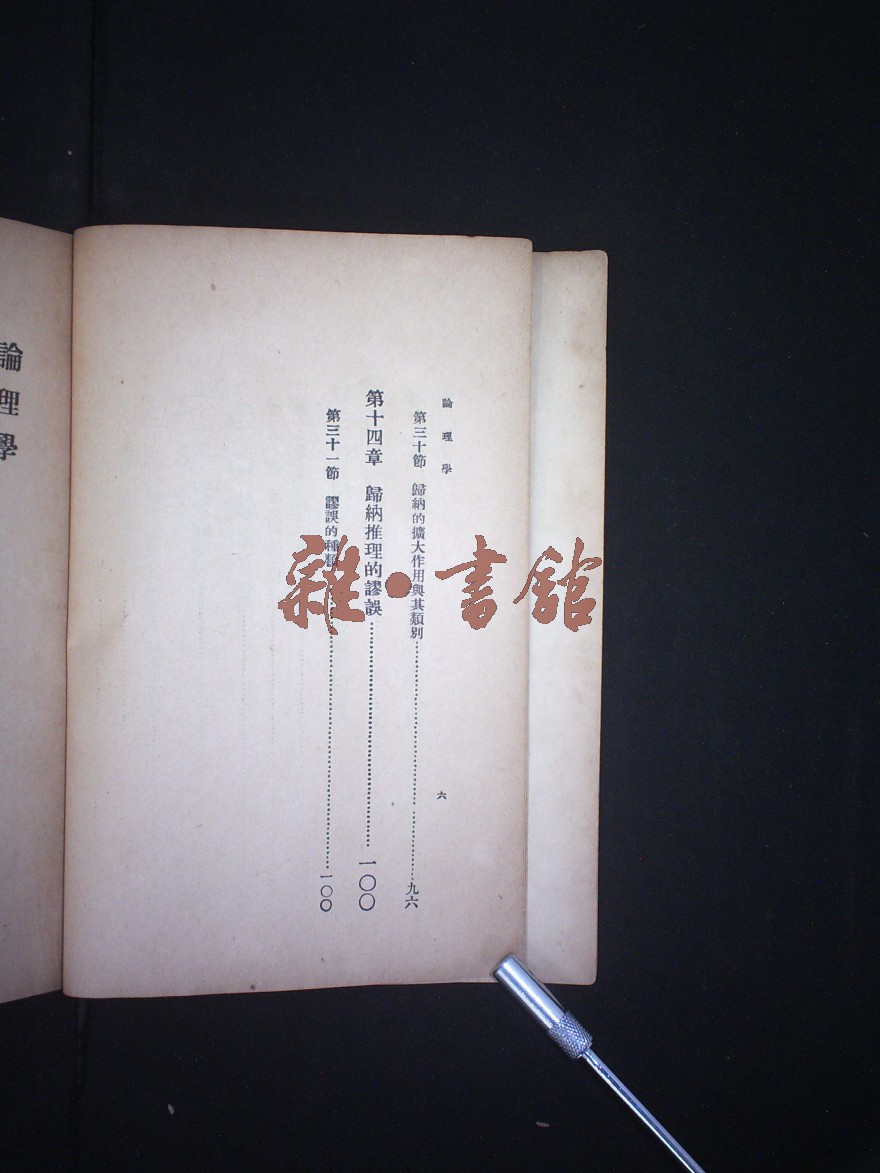 論理學
六
第三十節 歸納的擴大作用與其類別……九六
第十四章 歸納推理的謬誤……一〇〇
第三十一節 謬誤的種類……一〇〇
論理學
雜·書館